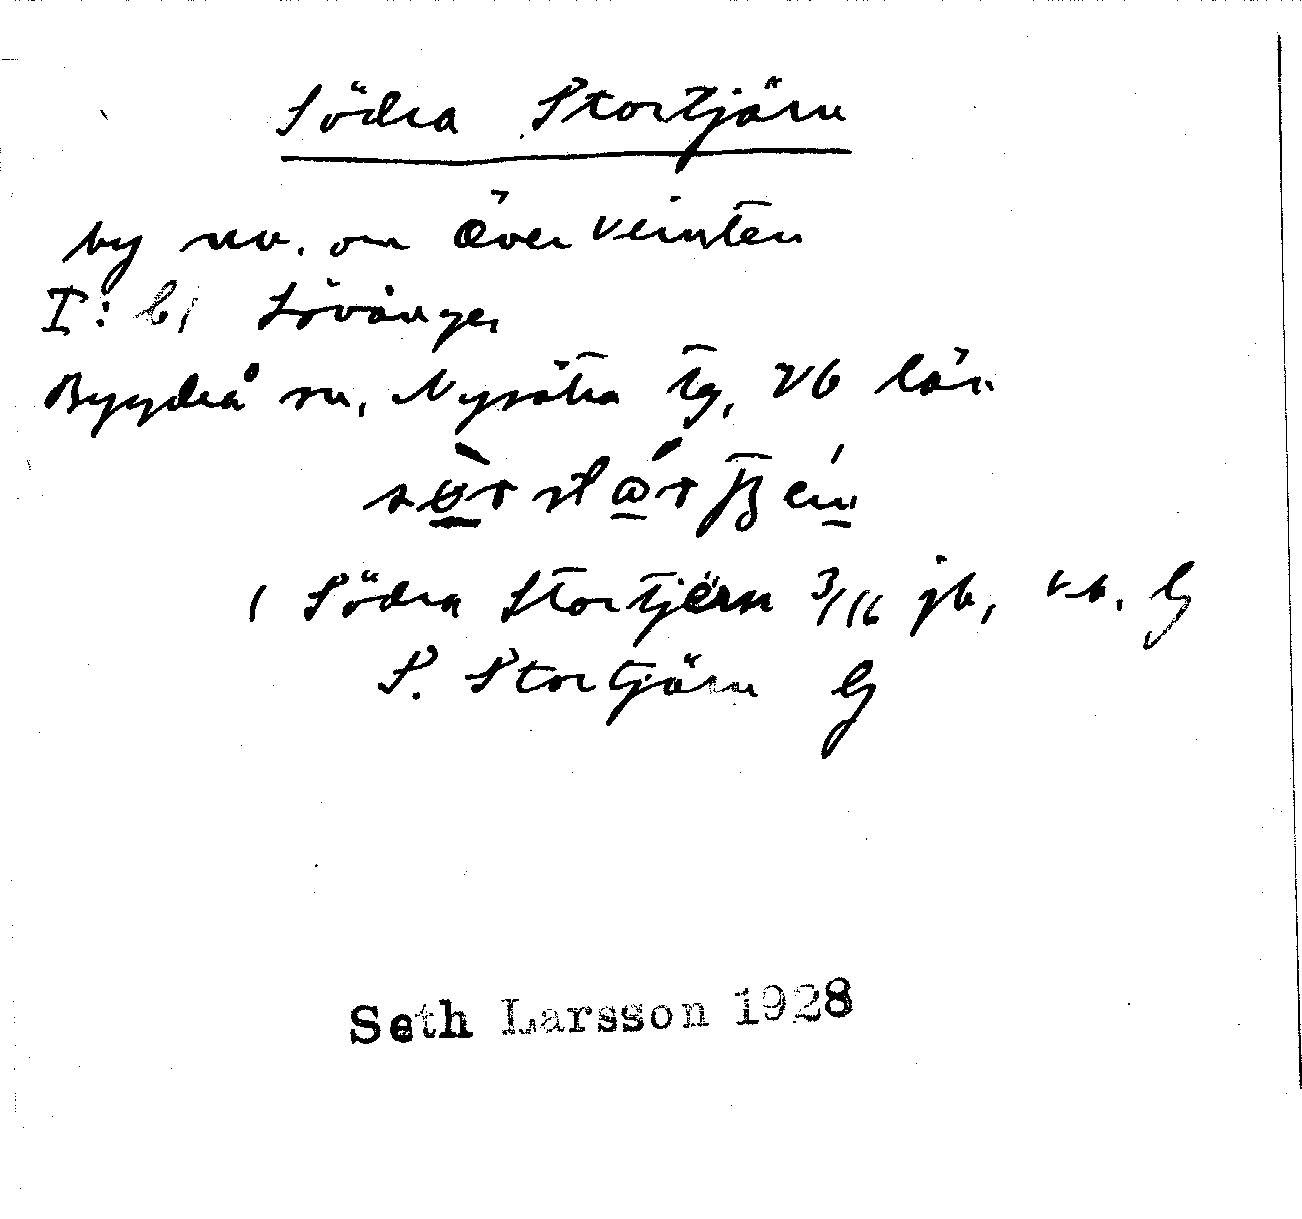 Södra Stortjärn
by nv. om Överklinten
I: b, Lövånger
Bygdeå sn, Nysätra tg, Vb län
Södra Stortjärn 3/16 jb,
S. Stortjärn
Seth Larsson 1928